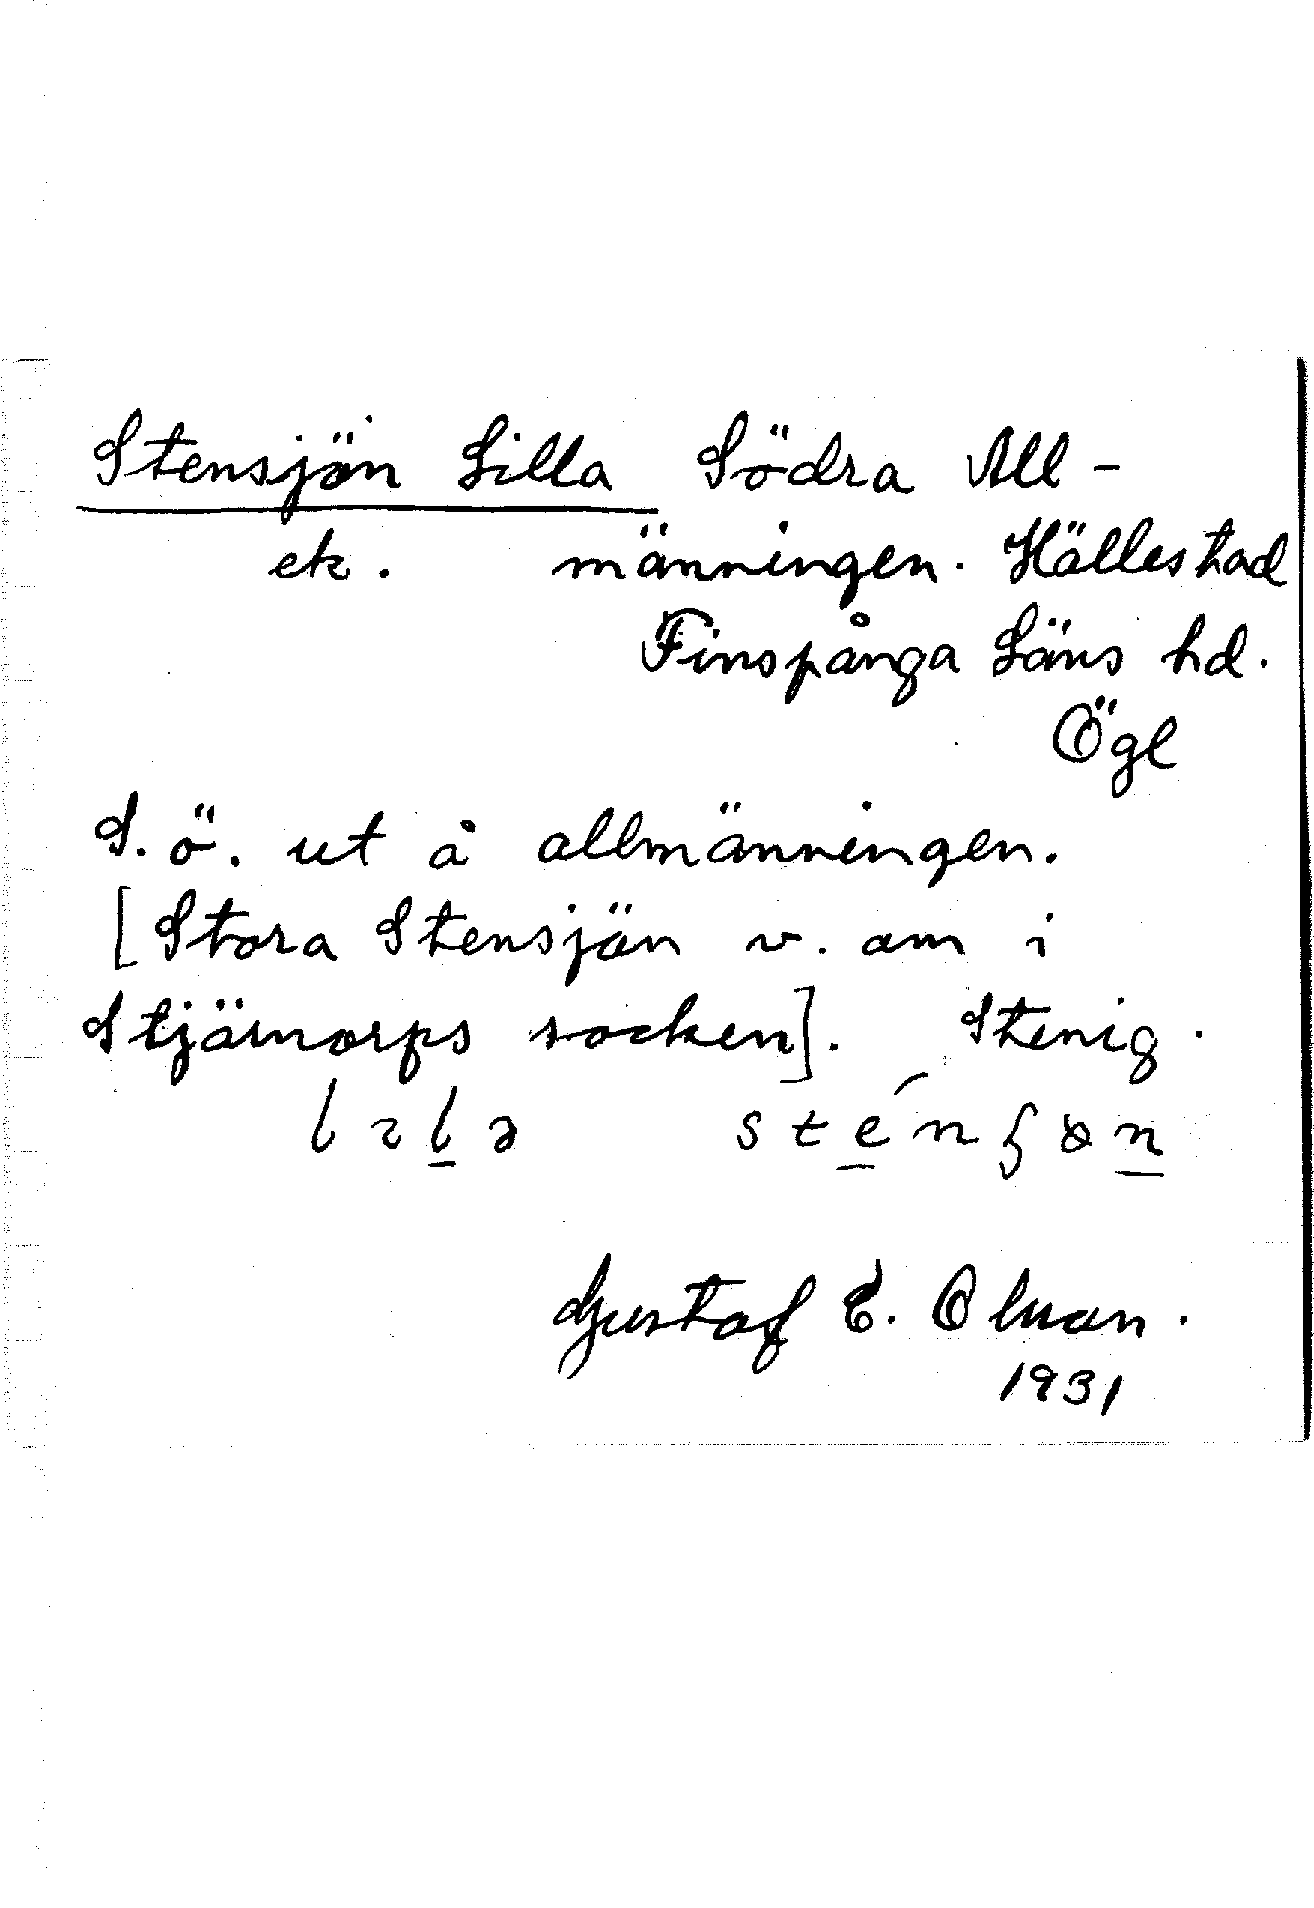 Stensjön Lilla Södra All-
ek. männingen. Hällestad
Finspånga Läns hd.
Ögl
S. ö. ut å allmänningen.
[Stora Stensjön v. om i
Stjärnorps socken]. Stenig.
Gustaf E. Olman.
1931